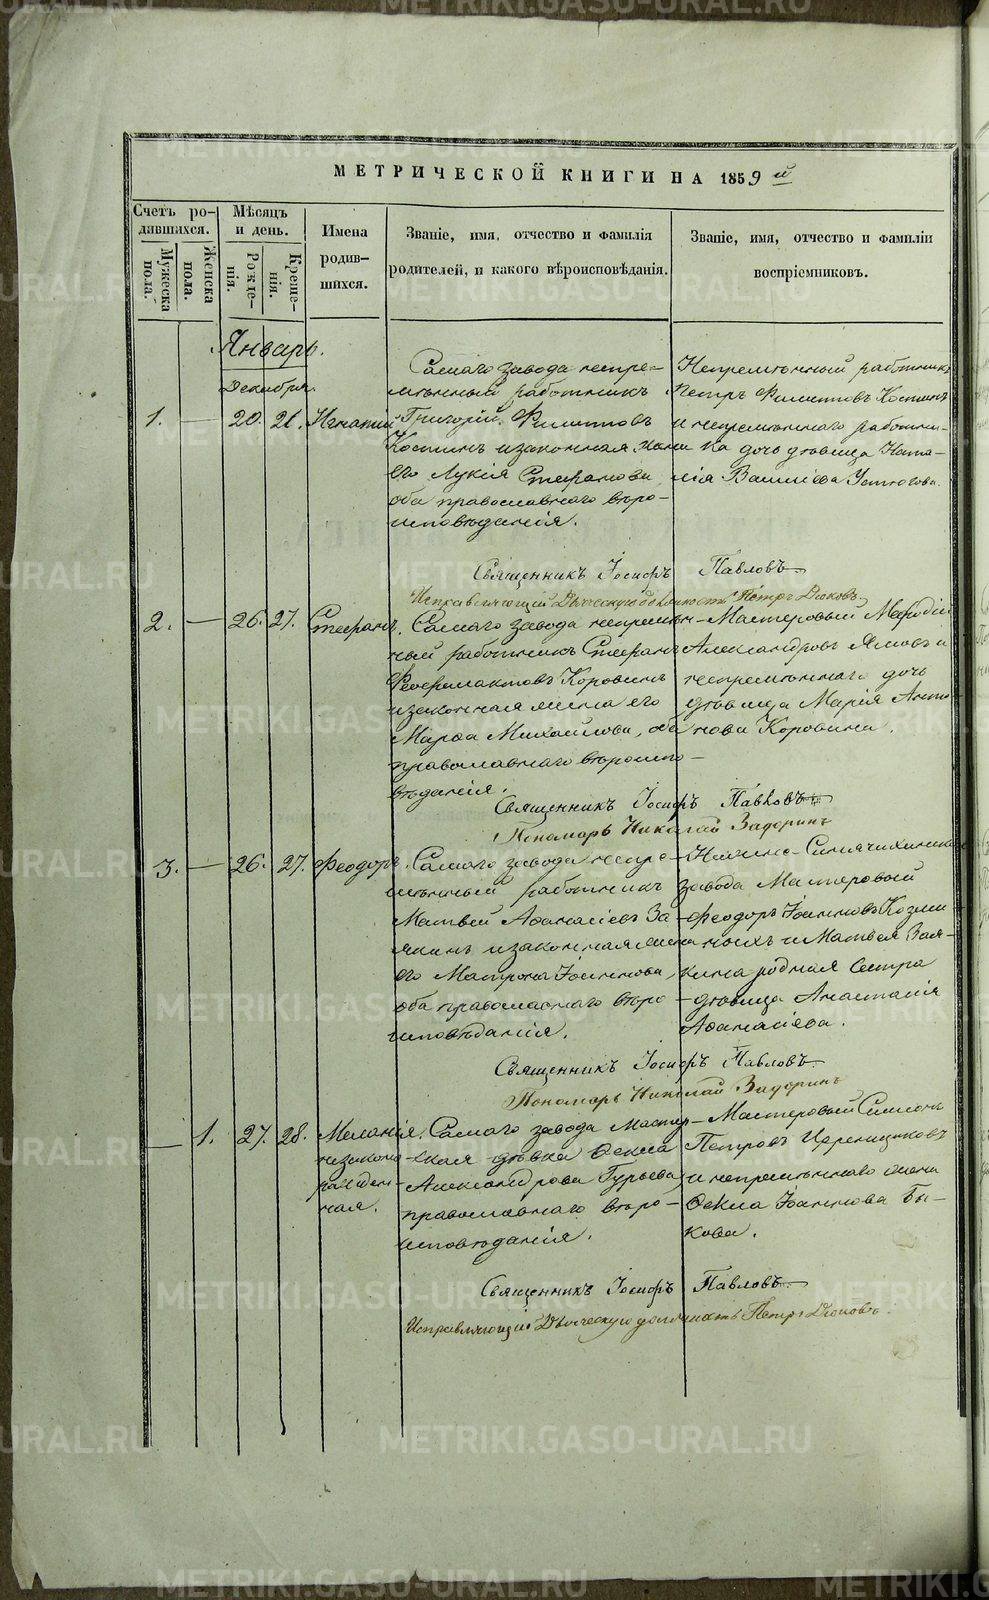 МЕТРИЧЕСКОЙ КНИГИ НА 1859 й
Счетъ ро-
дившихся.
Мужеска
пола.
Женска
пола.
Мѣсяцъ
и день.
Рожде-
нія.
Креще-
нія.
Имена
родив-
шихся.
Званіе, имя, отчество и фамилія
родителей, и какого вѣроисповѣданія.
Званіе, имя, отчество и фамиліи
воспріемниковъ.
Январь.
Декабря.
1. — 20. 21. Игнатій
Самаго завода непре-
мѣнный работникъ
Григорій Филиповъ
Костинъ и законная жена
его Лукія Стефанова
оба православнаго вѣро-
исповѣданія.
Непремѣнный работникъ
Петръ Филиповъ Костинъ
и непремѣннаго работни-
ка дочь дѣвица Ната-
лія Васильева Устюгова.
Священникъ Іосифъ Павловъ
Исправляющій Дьяческую должность Петръ Дюковъ
2. — 26. 27. Стефанъ.
Самаго завода непремѣн-
ный работникъ Стефанъ
Феофилактовъ Коровинъ
и законная жена его
Марѳа Михайлова, оба
православнаго вѣроиспо-
вѣданія.
Мастеровый Меѳодій
Александровъ и
непремѣннаго дочь
дѣвица Марія Анто-
нова Коровина.
Священникъ Іосифъ Павловъ
Пономарь Николай Задоринъ
3. — 26. 27. Феодоръ.
Самаго завода непре-
мѣнный работникъ
Матвей Аѳанасіевъ За-
якинъ и законная жена
его Матрона Іоаннова
оба православнаго вѣро-
исповѣданія.
Нижне-Синячихинскаго
завода Мастеровый
Феодоръ Іоанновъ Козми-
ныхъ и Матвея Зая-
кина родная Сестра
дѣвица Анастасія
Аѳанасіева.
Священникъ Іосифъ Павловъ
Пономарь Николай Задоринъ
— 1. 27. 28. Меланія.
незаконо-
рожден-
ная.
Самаго завода Мастер-
ская дѣвка Ѳекла
Александрова Гурьева
православнаго вѣро-
исповѣданія.
Мастеровый Симеонъ
Петровъ
и непремѣннаго жена
Ѳекла Іоаннова Бы-
кова.
Священникъ Іосифъ Павловъ
Исправляющій Дьяческую должность Петръ Дюковъ.
METRIKI.GASO-URAL.RU